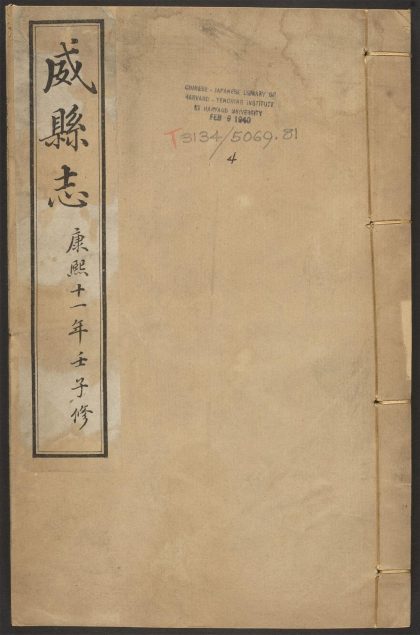 威縣志
康熙十一年壬子修
CHINESE - JAPANESE LIBRARY OF
HARVARD - YENCHING INSTITUTE
AT HARVARD UNIVERSITY
FEB 9 1940
T3134/5069.81
4